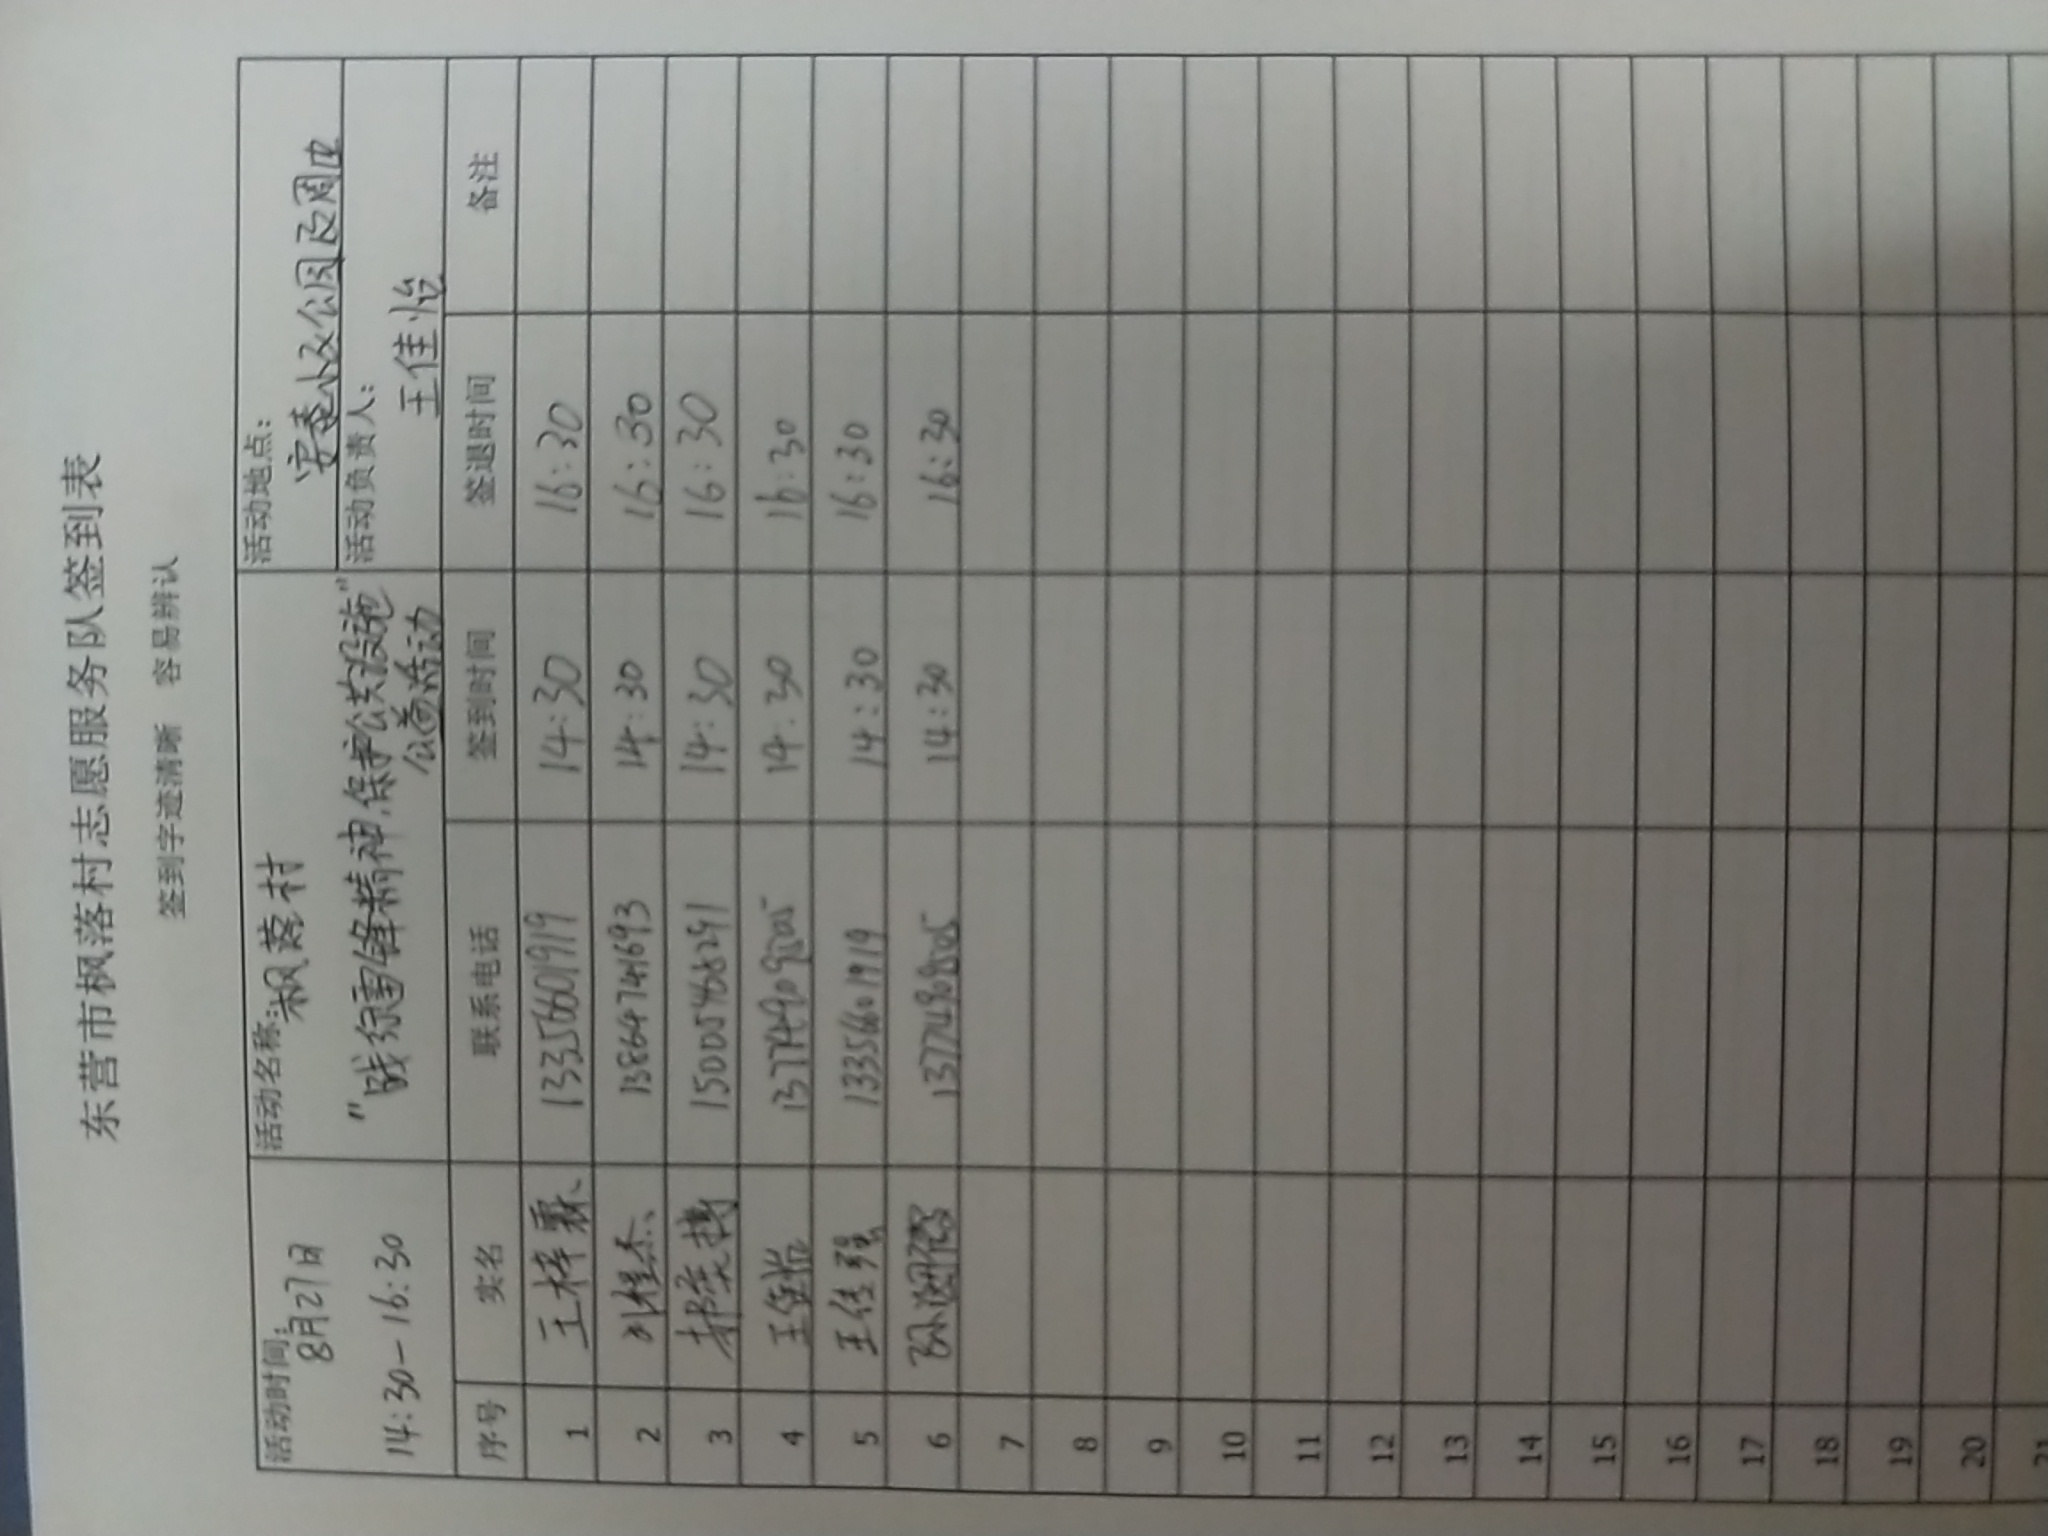 东营市枫落村志愿服务队签到表
签到字迹清晰 容易辨认
活动时间: 8月27日
14:30-16:30
活动名称: 枫落村
"战绿雷锋精神,保护公共设施"
公益活动
活动地点:
安泰小区公园及周边
活动负责人:
王佳怡
序号 实名 联系电话 签到时间 签退时间 备注
1 王梓霖 13356601919 14:30 16:30
2 刘程杰 13864741693 14:30 16:30
3 郝奕博 15005468291 14:30 16:30
4 王佳怡 14:30 16:30
5 王佳强 13356601919 14:30 16:30
6 孙 14:30 16:30
7
8
9
10
11
12
13
14
15
16
17
18
19
20
21